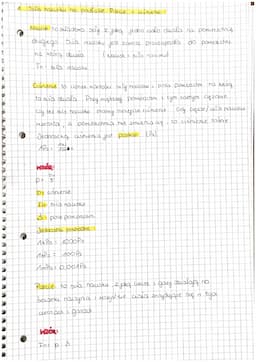 Siła nacisku na podłoże. Parcie i ciśnienie
Nacisk to wartość siły z jaką jedno ciało działa na powierzchnię
drugiego. Siła nacisku jest zawsze prostopadła do powierzchni
na którą działa (Nacisk = siła nacisku)
Fn - siła nacisku
Ciśnienie to iloraz wartości siły nacisku i pola powierzchni na którą
ta siła działa. Przy większej powierzchni i tym samym ciężarze
czy też sile nacisku mamy mniejsze ciśnienie. Gdy ciężar/siła nacisku
wzrasta, a powierzchnia nie zmienia się - to ciśnienie rośnie
Jednostką ciśnienia jest paskal (Pa)
1Pa =
WZÓR:
p =
p - ciśnienie
Fn - siła nacisku
S - pole powierzchni
Jednostki pochodne
1kPa = 1000Pa
1hPa = 100Pa
Parcie to siła nacisku z jaką ciecze i gazy działają na
ścianki naczynia i wszystkie ciała znajdujące się w tych
cieczach i gazach
WZÓR:
Fn = p · S